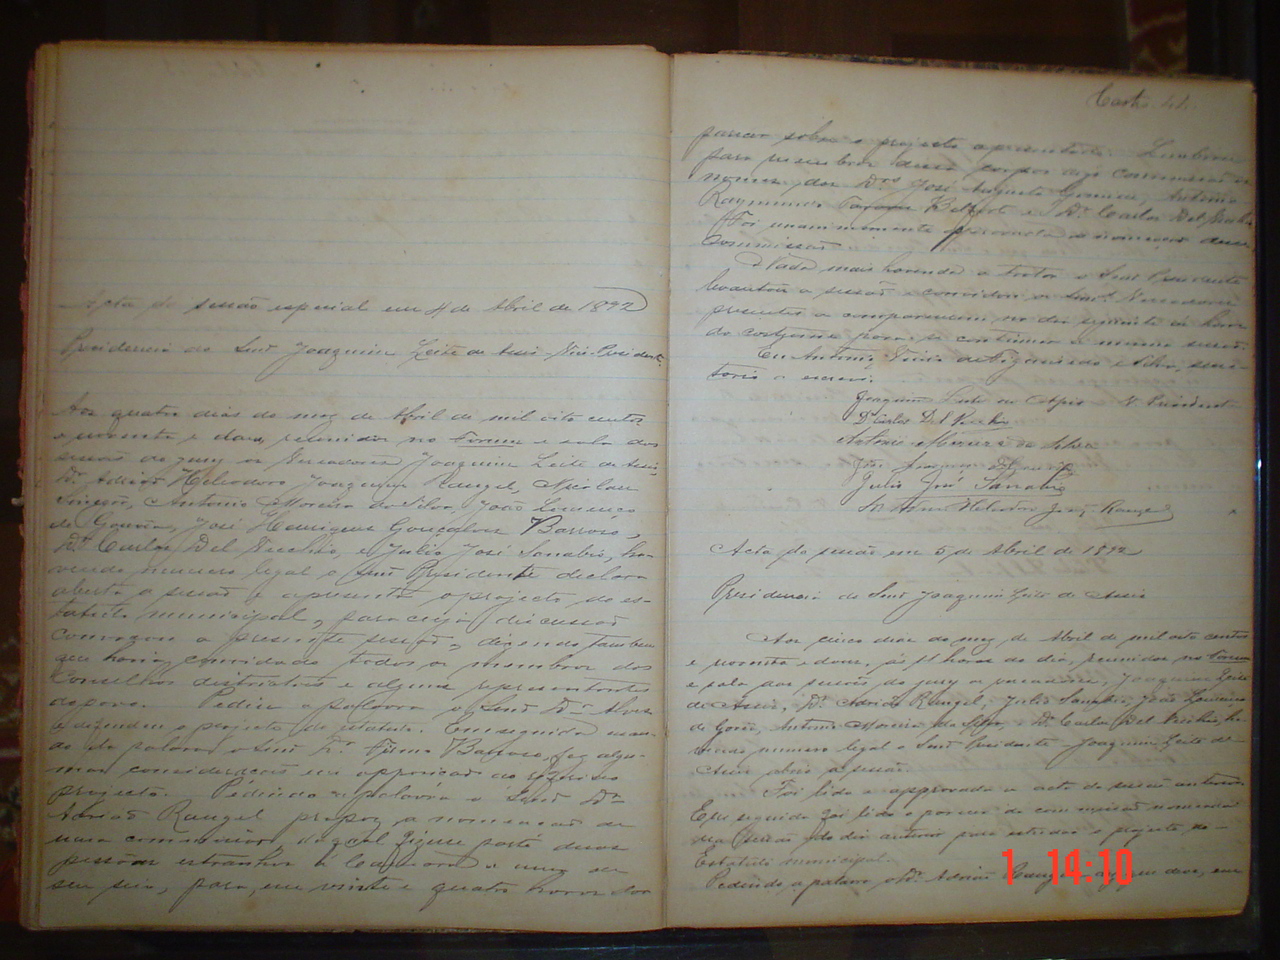 Acta da sessão especial em 4 de Abril de 1892
Presidencia do Snr. Joaquim Leite de Assis - Vice-Presidente
Aos quatro dias do mez de Abril de mil oito centos
e noventa e dous, reunidos no forum e sala das
sessões do jury os Vereadores Joaquim Leite de Assis
Dr. Adrião Heliodoro Joaquim Rangel, Nicolau
Antonio Moreira da Silva, João Lourenço
de Gouvêa, José Henrique Gonçalves Barroso,
Dr. Carlos Del Vecchio, e Julio José Sanabio, ha-
vendo numero legal o Snr. Presidente declara
aberta a sessão e apresenta o projecto do es-
tatuto municipal, para cuja discussão
convocou a presente sessão, dizendo tambem
que havia convidado todos os membros dos
Conselhos districtaes e alguns representantes
do povo. Pediu a palavra o Snr. Dr.
e defendeu o projecto de estatuto. Em seguida usan-
do da palavra o Snr. Dr. Firmo Barroso, fez algu-
mas considerações em opposição ao
projecto. Pedindo a palavra o Snr. Dr.
Adrião Rangel propoz a nomeação de
uma commissão, da qual fizesse parte duas
pessôas estranhas á Camara e uma de
seu seio, para, em vinte e quatro horas dar
Carts. 44
parecer sobre o projecto apresentado. Lembrou
para membros dessa commissão os
nomes dos Drs. José Augusto Antonio
Raymundo Belfort e Dr. Carlos Del Vecchio
Foi unanimemente approvada a nomeação dessa
Commissão
Nada mais havendo a tratar o Snr. Presidente
levantou a sessão e convidou os Snrs. Vereadores
presentes a comparecerem no dia seguinte ás horas
do costume para se continuar a mesma sessão.
Eu Antonio de Figueiredo e Silva, secre-
tario o escrevi.
Joaquim Leite de Assis V. Presidente
Dr. Carlos Del Vecchio
Antonio Moreira da Silva
João Lourenço
Julio José Sanabio
Adrião Heliodoro Joaq. Rangel
Acta da sessão em 5 de Abril de 1892
Presidencia do Snr. Joaquim Leite de Assis
Aos cinco dias do mez de Abril de mil oito centos
e noventa e dous, ás 11 horas do dia, reunidos no forum
e sala das sessões do jury os vereadores Joaquim Leite
de Assis, Dr. Adrião Rangel, Julio Sanabio, João Lourenço
de Gouvêa, Antonio Moreira da Silva, Dr. Carlos Del Vecchio, ha-
vendo numero legal o Snr. Presidente Joaquim Leite de
Assis abriu a sessão.
Foi lida e approvada a acta da sessão anterior.
Em seguida foi lido o parecer da commissão nomeada
na sessão do dia anterior para estudar o projecto do
Estatuto municipal.
Pedindo a palavra o Dr. Adrião Rangel
1 14:10